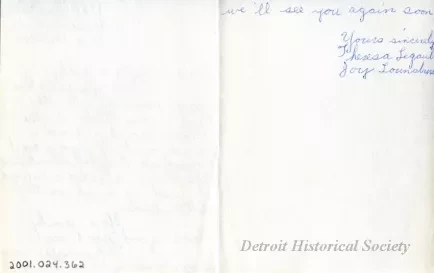 we'll see you again soon
Yours sincerely
Theresa
Joy
Detroit Historical Society
2001.024.362